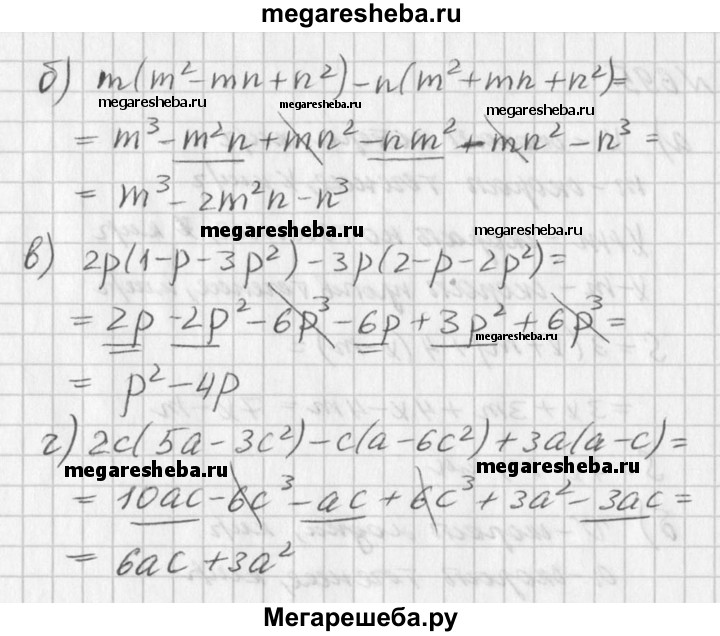 megaresheba.ru
б) m(m²-mn+n²)-n(m²+mn+n²)=
megaresheba.ru megaresheba.ru megaresheba.ru
= m³-m²n+mn²-nm²-mn²-n³ =
= m³-2m²n-n³
megaresheba.ru megaresheba.ru
в) 2p(1-p-3p²)-3p(2-p-2p²)=
= 2p-2p²-6p³-6p+3p²+6p³=
megaresheba.ru
= p²-4p
г) 2c(5a-3c²)-c(a-6c²)+3a(a-c)=
megaresheba.ru megaresheba.ru
= 10ac-6c³-ac+6c³+3a²-3ac=
= 6ac+3a²
Мегарешеба.ру